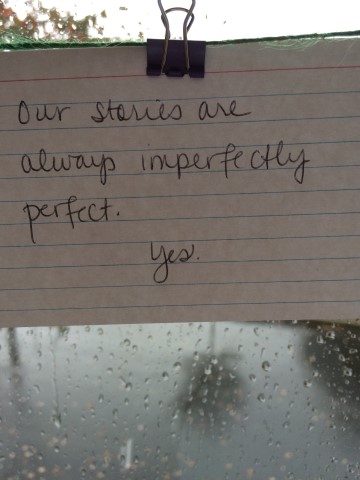 Our stories are
always imperfectly
perfect.
Yes.